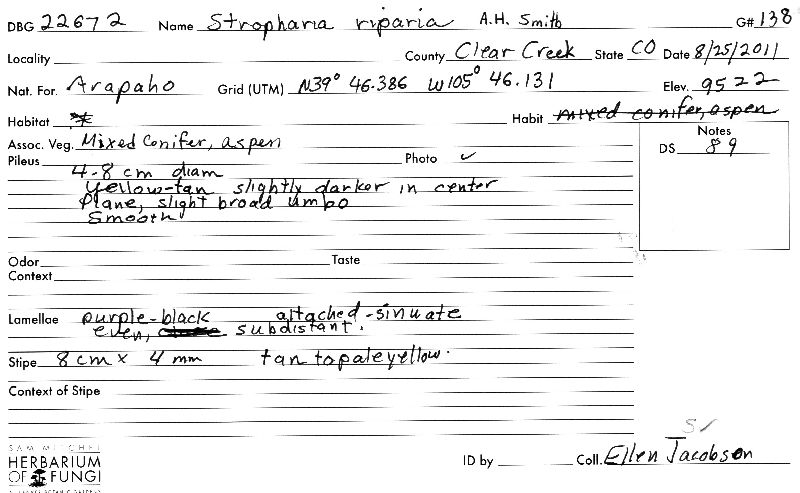 DBG 22672 Name Stropharia riparia A.H. Smith G# 138
Locality County Clear Creek State CO Date 8/25/2011
Nat. For. Arapaho Grid (UTM) N39° 46.386 W105° 46.131 Elev. 9522
Habitat Habit mixed conifer, aspen
Assoc. Veg. Mixed Conifer, aspen Notes
Pileus Photo ✓ DS 89
4-8 cm diam
Yellow-tan slightly darker in center
Plane, slight broad umbo
Smooth
Odor Taste
Context
Lamellae purple-black attached-sinuate
even, subdistant.
Stipe 8cm x 4 mm tan to pale yellow.
Context of Stipe
S✓
SAM MITCHEL
HERBARIUM ID by Coll. Ellen Jacobson
OF FUNGI